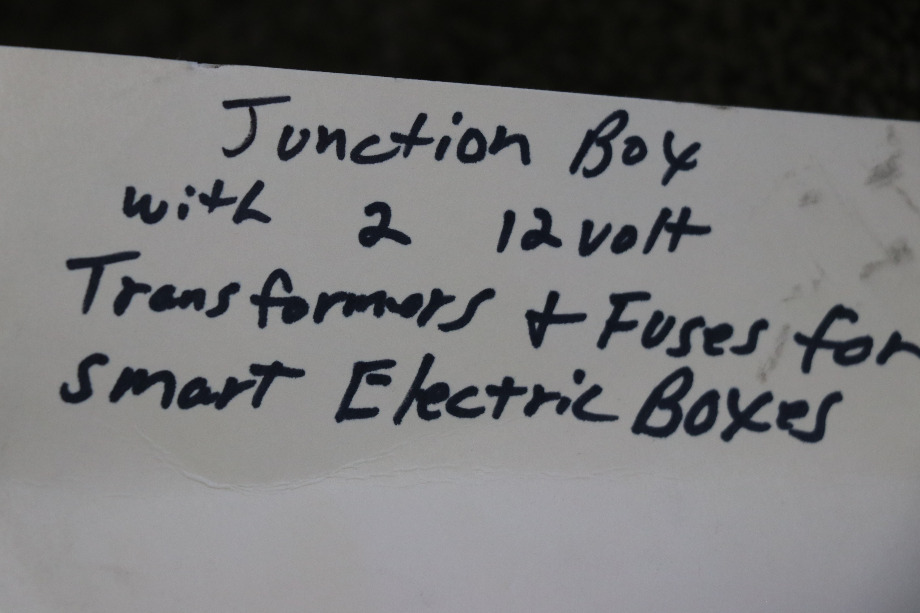 Junction Box
with 2 12 volt
Transformers + Fuses for
smart Electric Boxes